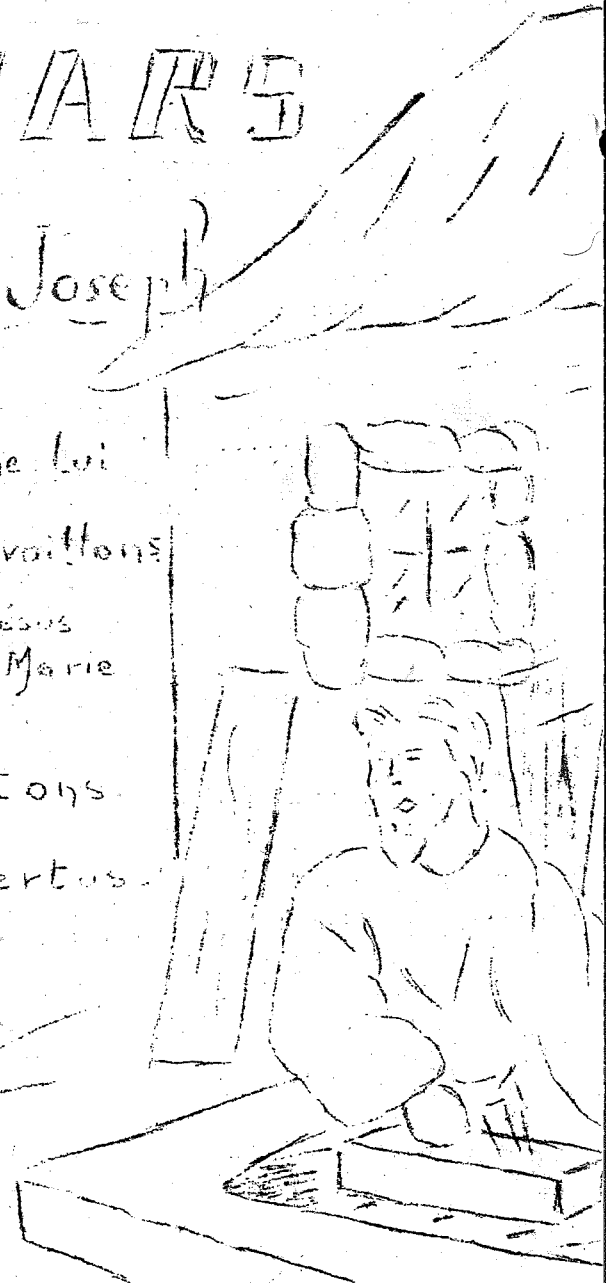 ARS
Joseph
e Lui
vaillons
ésus
Marie
tons
ertus.